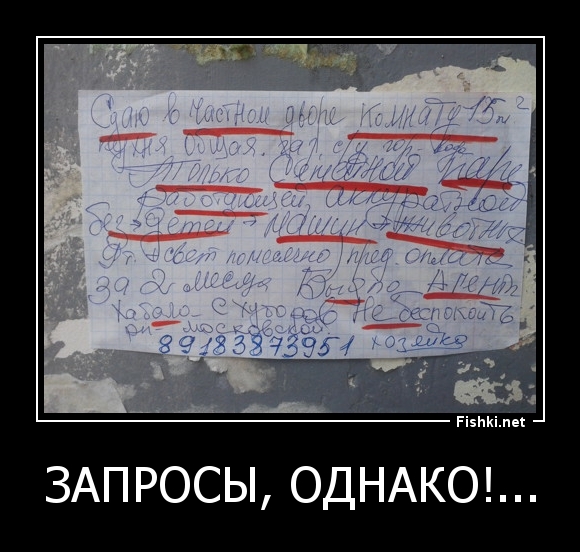 Сдаю в частном дворе комнату 15 м²
кухня общая. газ с/у гор. вода
Только Семейной паре
Работающей, аккуратной
без детей, машин, животных
эт. свет помесячно, пред. оплата
за 2 месяца Агент
Хабало - с хуторов Не беспокоить
рн - московской
89183873951 хозяйка
Fishki.net
ЗАПРОСЫ, ОДНАКО!...